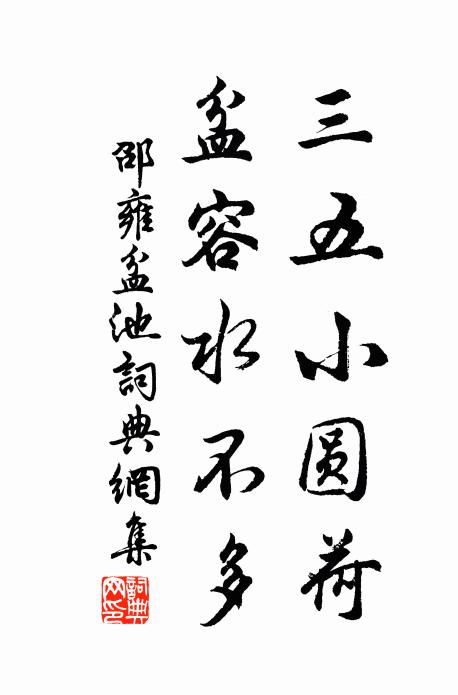 三五小圆荷
盆容水不多
邵雍盆池詞典網集